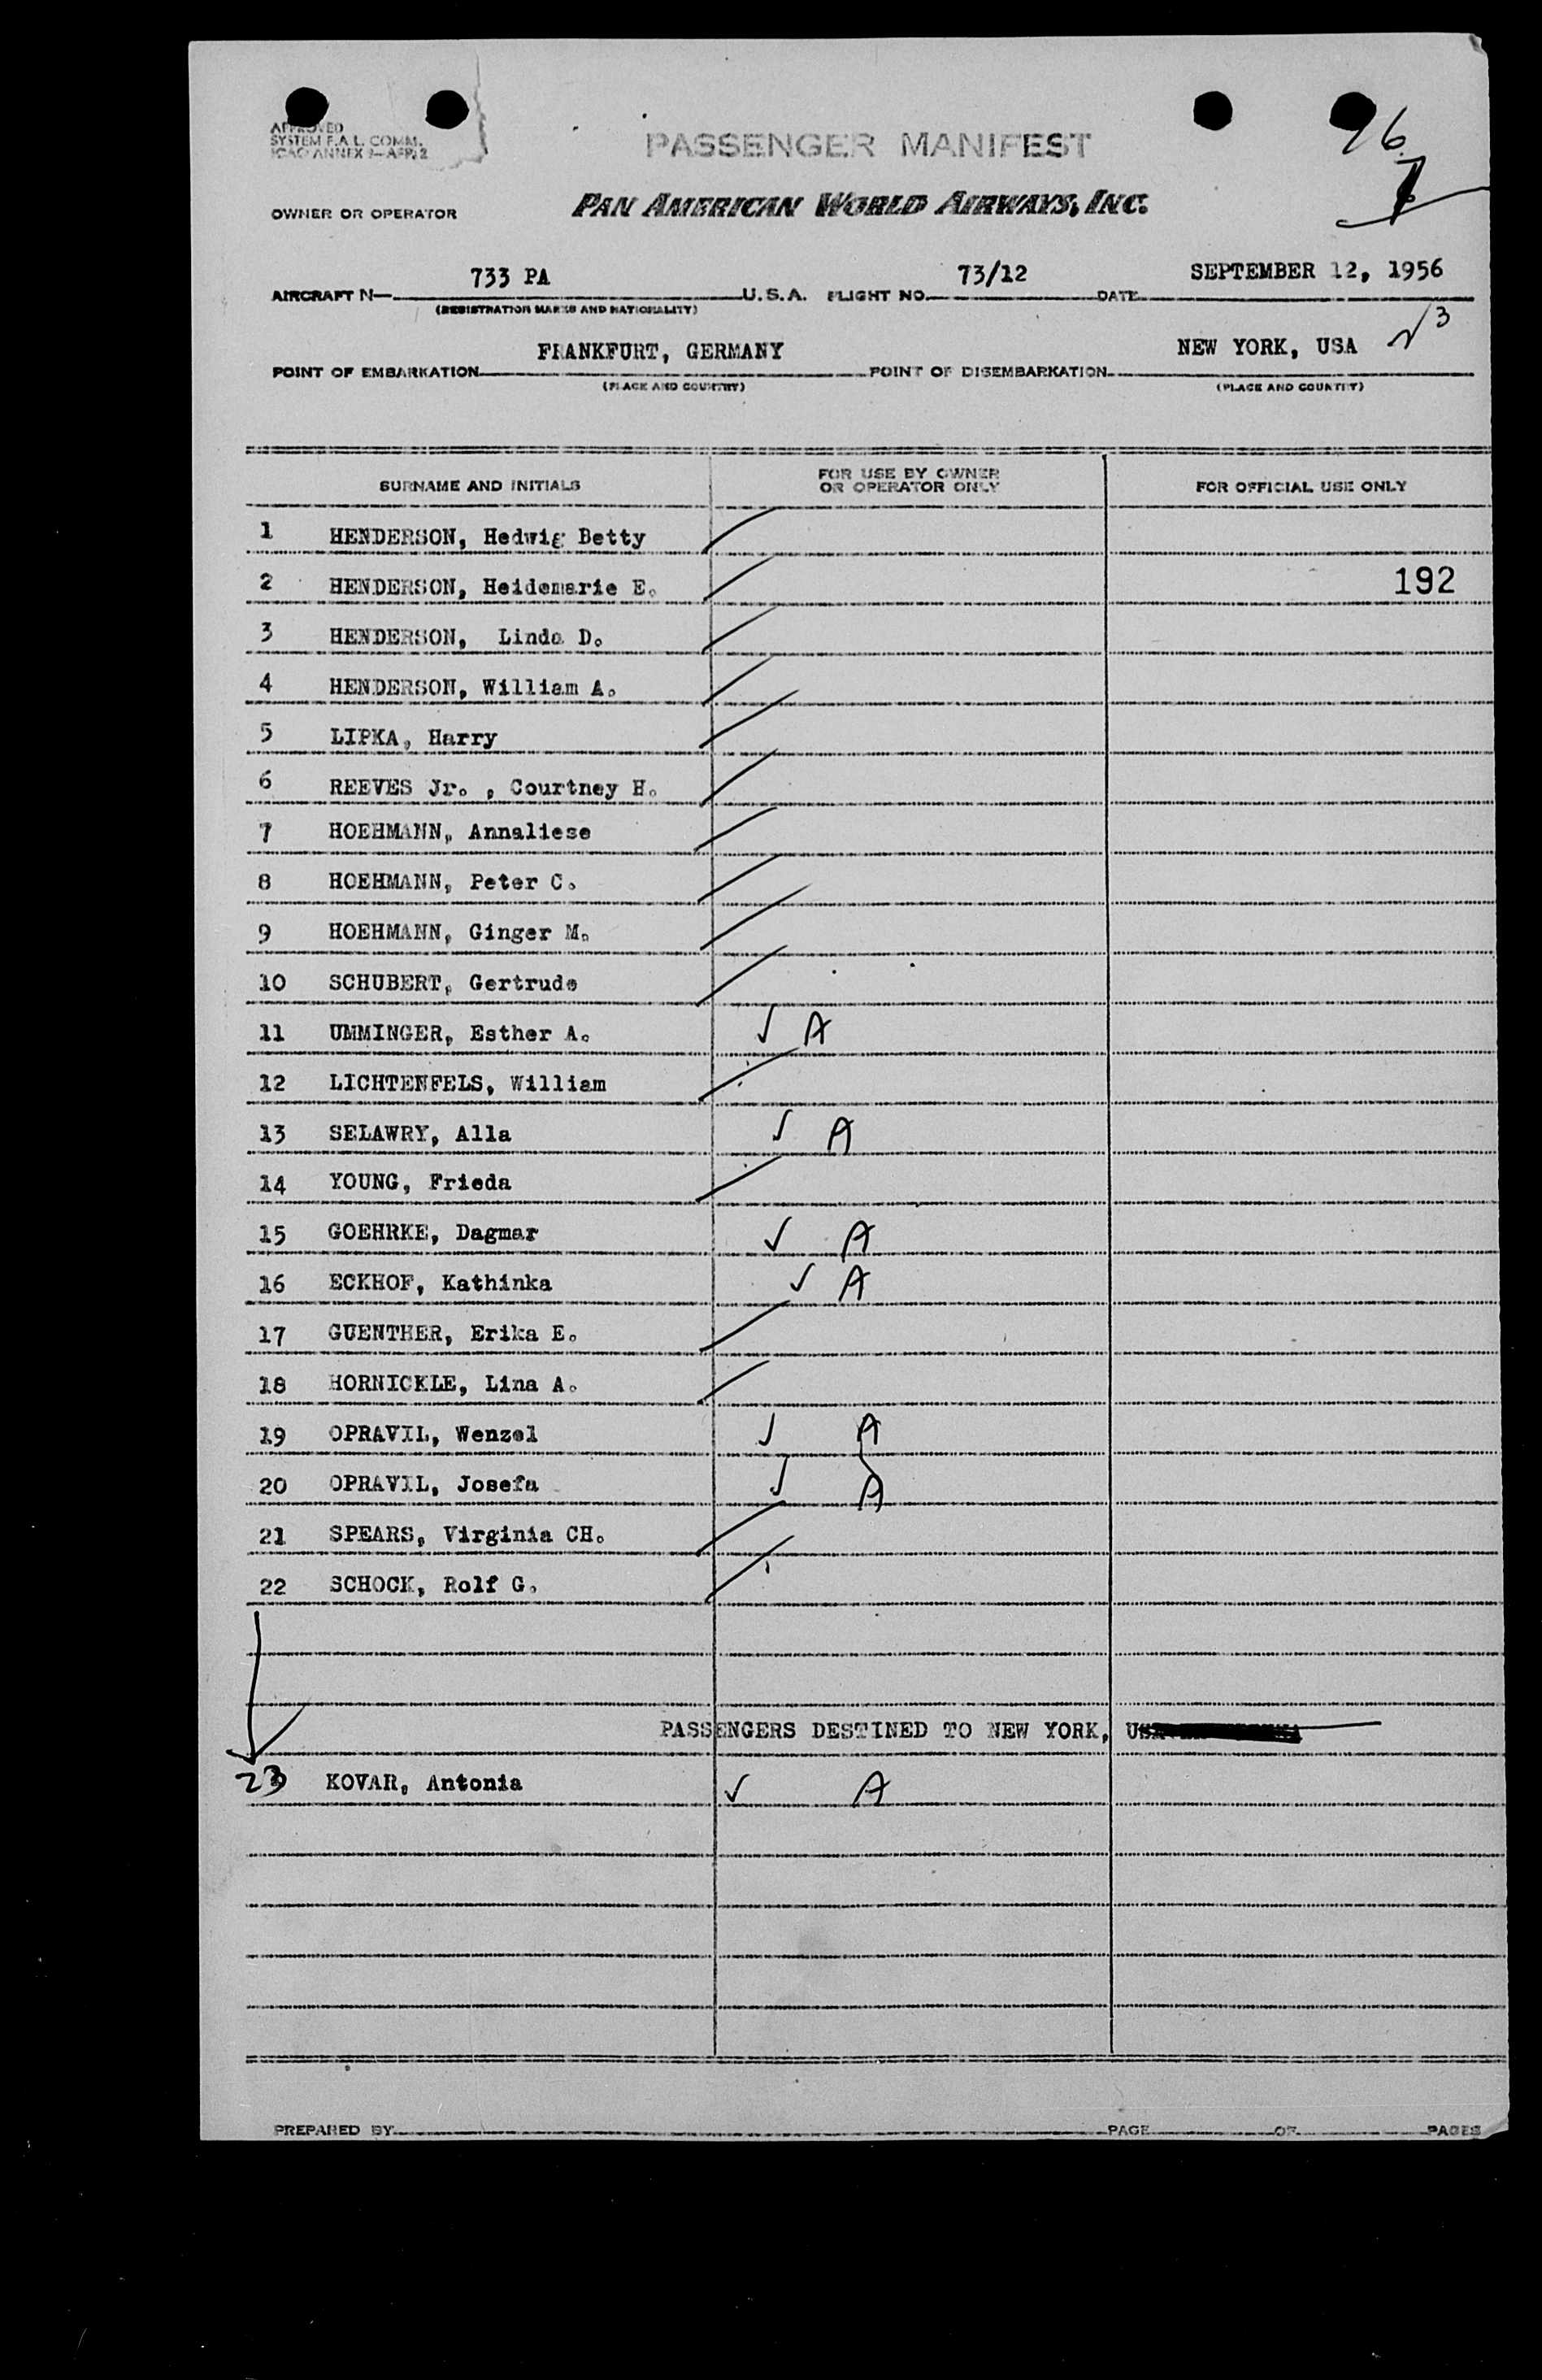 APPROVED
SYSTEM F.A.L. COMM.
ICAO ANNEX 9—APP. 2
PASSENGER MANIFEST
96
OWNER OR OPERATOR PAN AMERICAN WORLD AIRWAYS, INC.
AIRCRAFT N— 733 PA U.S.A. FLIGHT NO. 73/12 DATE SEPTEMBER 12, 1956
(REGISTRATION MARKS AND NATIONALITY)
√3
POINT OF EMBARKATION FRANKFURT, GERMANY POINT OF DISEMBARKATION NEW YORK, USA
(PLACE AND COUNTRY) (PLACE AND COUNTRY)
SURNAME AND INITIALS FOR USE BY OWNER OR OPERATOR ONLY FOR OFFICIAL USE ONLY
1 HENDERSON, Hedwig Betty
2 HENDERSON, Heidemarie E. 192
3 HENDERSON, Linda D.
4 HENDERSON, William A.
5 LIPKA, Harry
6 REEVES Jr. , Courtney H.
7 HOEHMANN, Annaliese
8 HOEHMANN, Peter C.
9 HOEHMANN, Ginger M.
10 SCHUBERT, Gertrude
11 UMMINGER, Esther A. ✓ A
12 LICHTENFELS, William
13 SELAWRY, Alla ✓ A
14 YOUNG, Frieda
15 GOEHRKE, Dagmar ✓ A
16 ECKHOF, Kathinka ✓ A
17 GUENTHER, Erika E.
18 HORNICKLE, Lina A.
19 OPRAVIL, Wenzel ✓ A
20 OPRAVIL, Josefa ✓ A
21 SPEARS, Virginia CH.
22 SCHOCK, Rolf G.
PASSENGERS DESTINED TO NEW YORK,
23 KOVAR, Antonia ✓ A
PREPARED BY PAGE OF PAGES